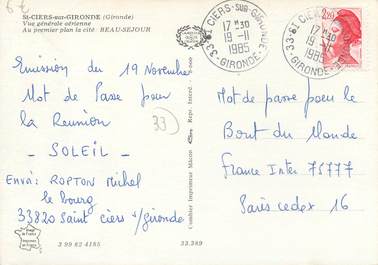 6 €
St-CIERS-sur-GIRONDE (Gironde)
Vue générale aérienne
Au premier plan la cité BEAU-SEJOUR
Emission du 19 Novembre
Mot de Passe pour
la Reunion
33
- SOLEIL -
Envoi: ROPTON Michel
le bourg
33820 Saint Ciers s/gironde
3 99 62 4185
33.389
Combier Imprimeur Mâcon
Repr. Interd.
33 - St CIERS-SUR-GIRONDE
17 H 30
19 - 11
1985
- GIRONDE -
33 - St CIERS
17 H 30
19 - 11
1985
- GIRONDE -
2,20
Mot de passe pour le
Bout du Monde
France Inter 75777
Paris cedex 16